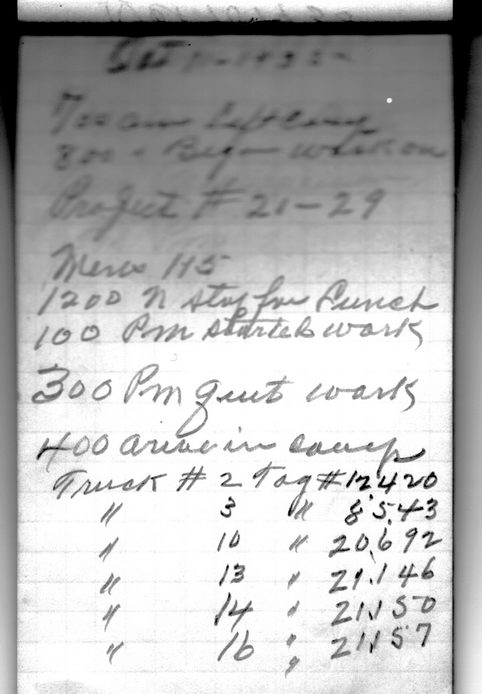 Oct 11-1935-
700 am left camp
800 " Begin work on
Project # 21-29
Men 145
1200 N stop for Lunch
100 Pm started work
300 Pm quit work
400 arive in camp
Truck # 2 Tag # 12420
" 3 " 8543
" 10 " 20,692
" 13 " 21,146
" 14 " 21,150
" 16 " 21,157
"